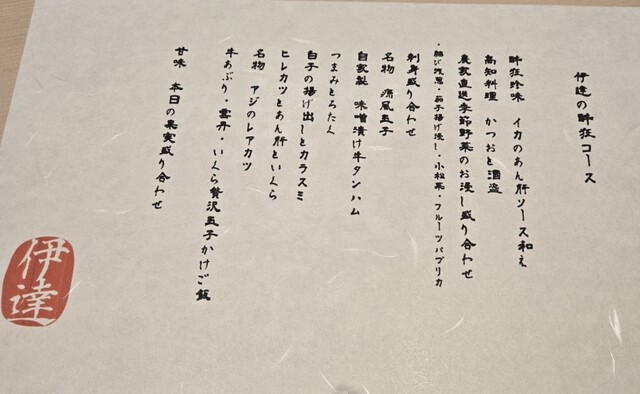 伊達の酔狂コース
酔狂珍味　イカのあん肝ソース和え
高知料理　かつおと酒盗
農家直送季節野菜のお浸し盛り合わせ
・結び浅葱・茄子揚げ浸し・小松菜・フルーツパプリカ
刺身盛り合わせ
名物　痛風玉子
自家製　味噌漬け牛タンハム
つまみとろたく
白子の揚げ出しとカラスミ
ヒレカツとあん肝といくら
名物　アジのレアカツ
牛あぶり・雲丹・いくら贅沢玉子かけご飯
甘味　本日の果実盛り合わせ
伊達